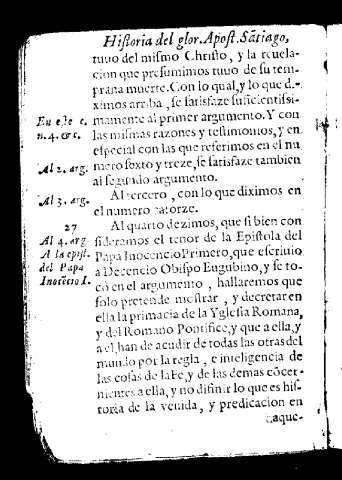 Historia del glor. Apost. Sãtiago,
tuuo del mismo Christo, y la reuela-
cion que presumimos tuuo de su tem-
prana muerte. Con lo qual, y lo que d-
ximos arriba, se satisfaze suficientissi-
mamente al primer argumento. Y con
las mismas razones y testimonios, y en
especial con las que referimos en el nu
mero sexto y treze, se satisfaze tambien
al segundo argumento.
Al tercero, con lo que diximos en
el numero catorze.
Al quarto dezimos, que si bien con
sideramos el tenor de la Epistola del
Papa Inocencio Primero, que escriuio
a Decencio Obispo Eugubino, y se to-
cò en el argumento, hallaremos que
solo pretende mostrar, y decretar en
ella la primacia de la Yglesia Romana,
y del Romano Pontifice, y que a ella, y
a el, han de acudir de todas las otras del
mundo por la regla, e inteligencia de
las cosas de la Fe, y de las demas cõcer-
nientes a ella, y no difinir lo que es his-
toria de la venida, y predicacion en
aque-
En este c.
n. 4. &c.
Al 2. arg.
Al 3. arg.
27
Al 4. arg
A la epist.
del Papa
Inocẽcio I.